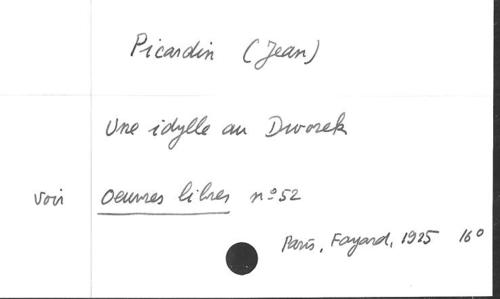 Picardin (Jean)
Une idylle au Dworek
voir Oeuvres libres nº 52
Paris, Fayard, 1925 16º